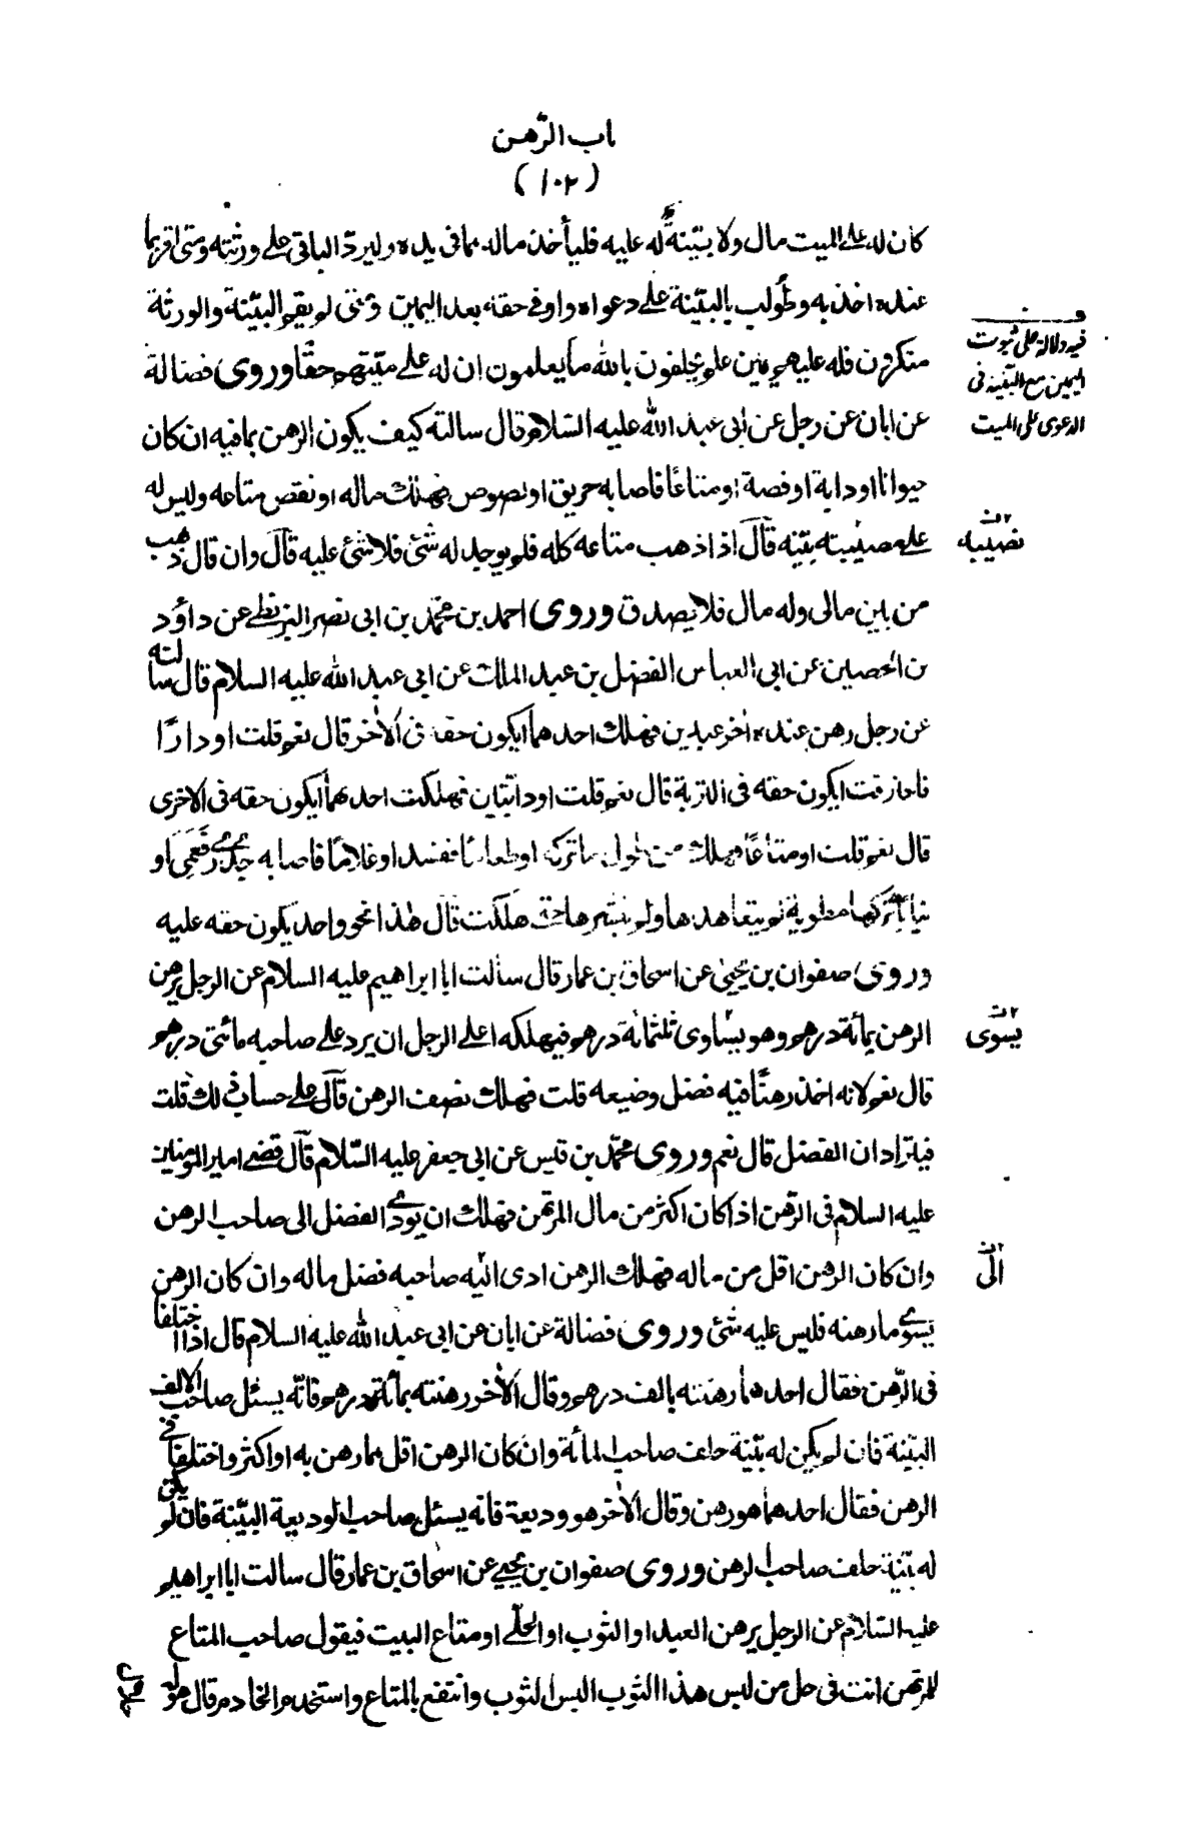 باب الرّهن
(١٠٢)
كان له على الميت مال ولا بيّنة له عليه فليأخذ ماله بما في يده وليردّ الباقي على ورثته ومتى اقر بما
عنده اخذ به وطُولب بالبيّنة على دعواه واوفى حقه بعد اليمين ومتى لم يقم البيّنة والورثة
منكرون فله عليهم يمين علم يحلفون بالله ما يعلمون ان له على ميّتهم حقًّا وروى فضالة
عن ابان عن رجل عن ابى عبد الله عليه السّلام قال سالته كيف يكون الرهن بما فيه ان كان
حيوانا او دابة او فضة او متاعًا فاصابه حريق او لصوص فهلك ماله او نقص متاعه وليس له
على مصيبته بيّنه قال اذا ذهب متاعه كله فلم يوجد له شئ فلا شئ عليه قال وان قال ذهب
من بين مالى وله مال فلا يصدق وروى احمد بن محمّد بن ابى نصر البزنطى عن داؤد
بن الحصين عن ابى العباس الفضل بن عبد الملك عن ابى عبد الله عليه السلام قال سالته
عن رجل رهن عنده اٰخر عبدين فهلك احدهما ايكون حقه فى الاٰخر قال نعم قلت او دارًا
فاحترقت ايكون حقه فى التربة قال نعم قلت او دابّتان فهلكت احدهما ايكون حقه فى الاخرى
قال نعم قلت او متاعًا فهلك من طول ما تركه او طعامًا ففسد او غلامًا فاصابه جدرى فعمى او
ثيابًا تركها مطوية لم يتعاهدها ولم ينشرها حتى هلكت قال هذا نحو واحد يكون حقه عليه
وروى صفوان بن يحيىٰ عن اسحاق بن عمار قال سألت ابا ابراهيم عليه السلام عن الرجل يرهن
الرهن بمائة درهم وهو يساوى ثلثمائة درهم فيهلكه اعلى الرجل ان يرد على صاحبه مائتى درهم
قال نعم لانه اخذ رهنًا فيه فضل وضيعه قلت فهلك نصف الرهن قال على حساب ذلك قلت
فيترادان الفضل قال نعم وروى محمّد بن قيس عن ابى جعفر عليه السّلام قال قضى امير المومنين
عليه السلام فى الرّهن اذا كان اكثر من مال المرتهن فهلك ان يودى الفضل الى صاحب الرهن
وان كان الرهن اقل من ماله فهلك الرهن ادى اليه صاحبه فضل ماله وان كان الرهن
يسوى ما رهنه فليس عليه شئ وروى فضالة عن ابان عن ابى عبد الله عليه السلام قال اذا اختلفا
فى الرّهن فقال احدهما رهنته بالف درهم وقال الاٰخر رهنته بمائة درهم فانّه يسئل صاحب الالف
البيّنة فان لم يكن له بيّنة حلف صاحب المأة وان كان الرهن اقل مما رهن به او اكثر واختلفا فى
الرهن فقال احدهما هو رهن وقال الاٰخر هو وديعة فانه يسئل صاحب الوديعة البيّنة فان لم يكن
له بيّنة حلف صاحب الرهن وروى صفوان بن يحيى عن اسحاق بن عمار قال سالت ابا ابراهيم
عليه السّلام عن الرجل يرهن العبد او الثوب او الحلّى او متاع البيت فيقول صاحب المتاع
للمرتهن انت فى حل من لبس هذا الثوب البس الثوب وانتفع بالمتاع واستخدم الخادم قال هو له
فيه دلالة على ثبوت
اليمين مع البيّنة فى
الدعوى على الميت
نصيبه
يسوى
الى